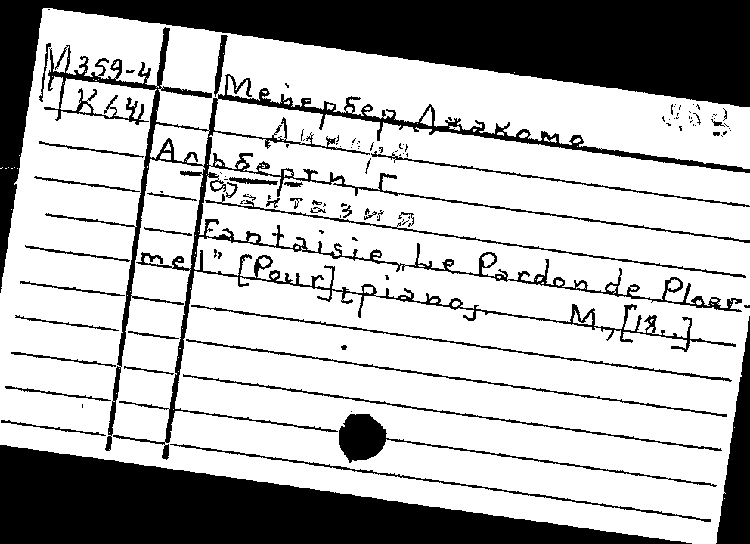 М 359-4
К 641
Мейербер, Джакомо
Динора
Альберти, Г.
Фантазия
Fantaisie „Le Pardon de Ploër-
mel". [Pour] piano.    М., [18..].